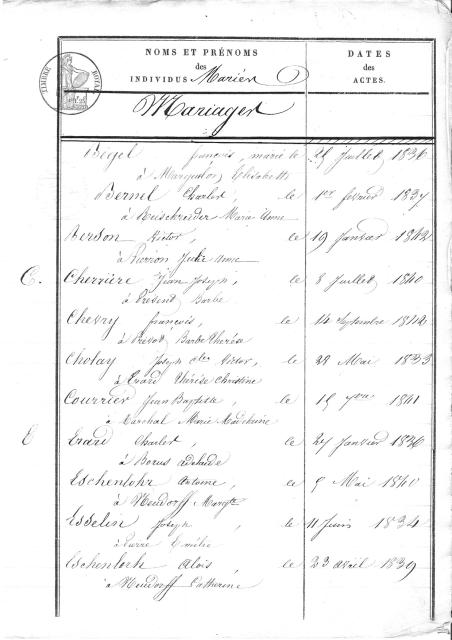 TIMBRE ROYAL
NOMS ET PRÉNOMS
des
INDIVIDUS Mariés
DATES
des
ACTES.
Mariages
Begel françois, marié le 25 Juillet 1836
à Marquaton, Elisabeth
Bernel Charles, le 1er fevrier 1837
à Marie Anne
Berson Victor, le 19 Janvier 1842
à Pierron Julie Anne
C. Cherrière Jean Joseph, le 8 Juillet 1840
à Présent Barbe
Chevry françois, le 14 Septembre 1842
à Prevot Barbe Thérèse
Cholay Joseph Victor, le 28 Mai 1833
à Erard Thérèse Christine
Courrier Jean Baptiste, le 15 1841
à Marchal Marie
E Erard Charles, le 27 Janvier 1836
à Borus adelaide
Eschenlohr Antoine, le 5 Mai 1840
à Neudorff Margte
Esselin Joseph, le 11 Juin 1834
à Pierre Emélie
Eschenlorh Alois, le 23 avril 1839
à Neudorff Catherine